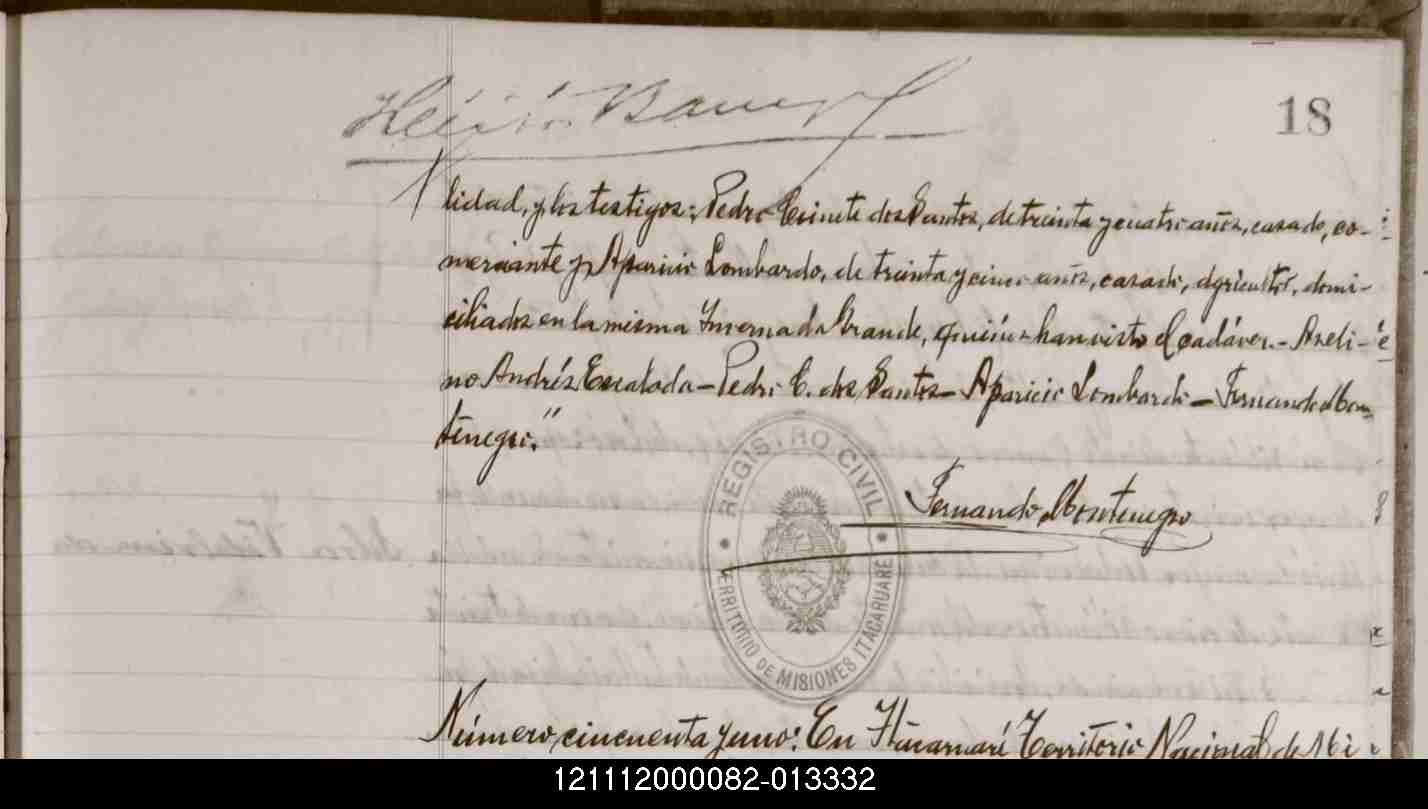 18
lidad, y los testigos: Pedro dos Santos, de treinta y cuatro años, casado, co-
merciante y Aparicio Lombardo, de treinta y cinco años, casado, agricultor, domi-
ciliados en la misma Invernada Grande, quiénes han visto el cadáver.- Aveli-
no Andrés Escalada - Pedro E. dos Santos - Aparicio Lombardo - Fernando Mon-
tenegro."
REGISTRO CIVIL
Fernando Montenegro
TERRITORIO DE MISIONES ITACARUARE
Número cincuenta y uno: En Itacaruaré Territorio Nacional de Mi
121112000082-013332